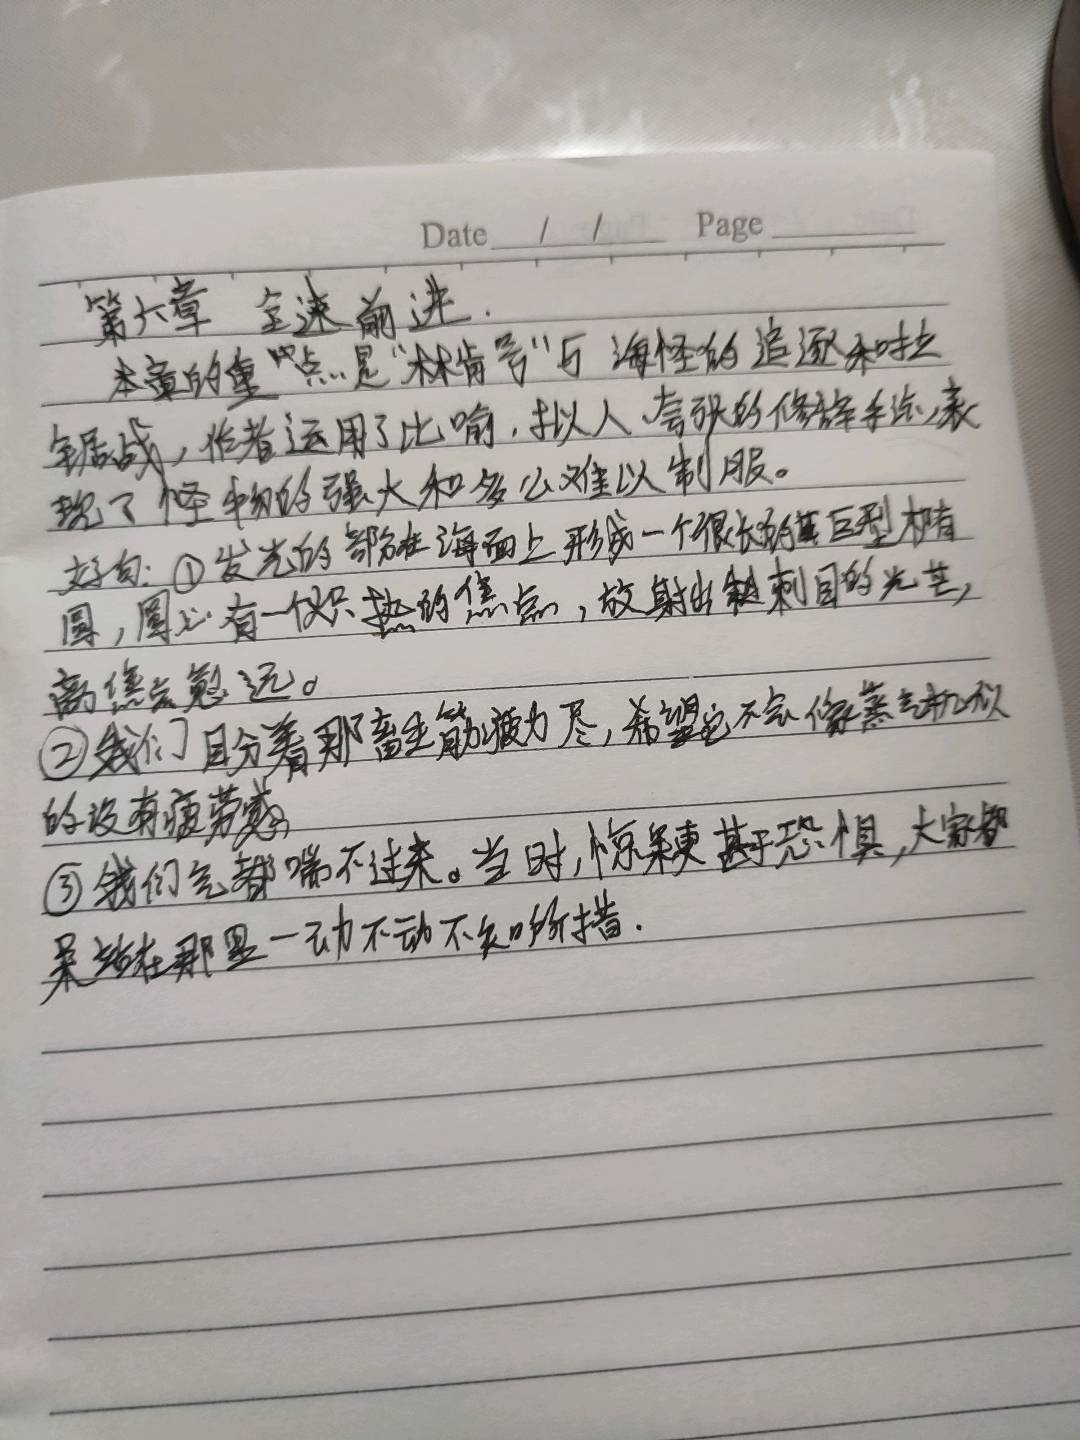 Date / / Page
第六章 全速前进.
本章的重点是“林肯号”与海怪的追逐和拉
锯战,作者运用了比喻,拟人、夸张的修辞手法,表
现了怪物的强大和多么难以制服。
好句:①发光的部分在海面上形成一个很长的巨型椭
圆,圆心有一个炽热的焦点,放射出刺目的光芒,
离焦点愈远。
②我们目分着那畜生筋疲力尽,希望它不会像蒸气机似
的没有疲劳感。
③我们气都喘不过来。当时,惊呆更甚于恐惧,大家都
呆站在那里一动不动不知所措.